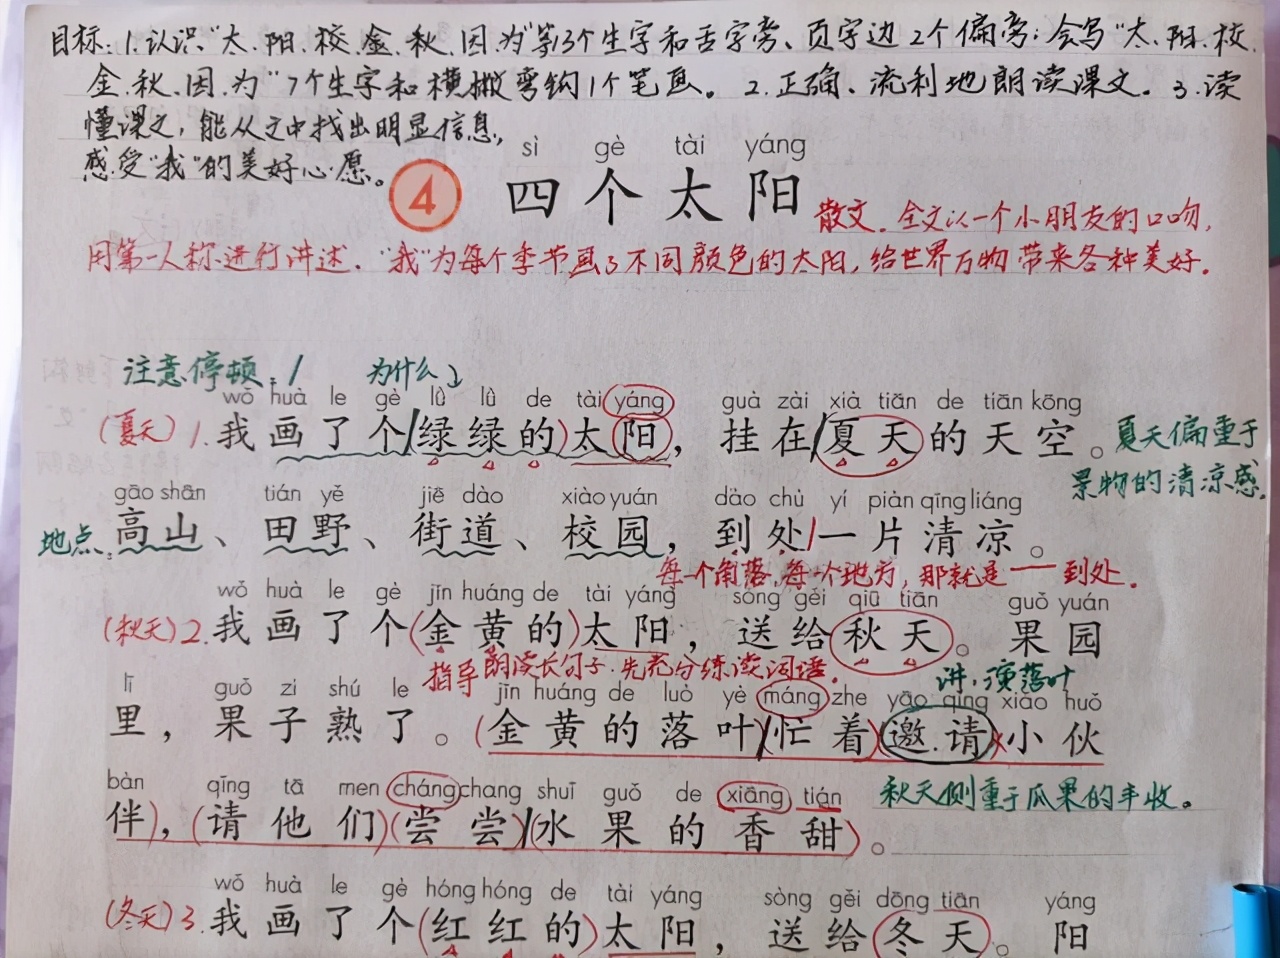 目标:1.认识"太、阳、校、金、秋、因、为"等13个生字和舌字旁、页字边2个偏旁;会写"太、阳、校、
金、秋、因、为"7个生字和横撇弯钩1个笔画。2.正确、流利地朗读课文。3.读
懂课文,能从文中找出明显信息,
感受"我"的美好心愿。
sì gè tài yáng
4 四个太阳
散文。全文以一个小朋友的口吻,
用第一人称进行讲述。"我"为每个季节画了不同颜色的太阳,给世界万物带来各种美好。
注意停顿。/ 为什么
wǒ huà le gè lǜ lǜ de tài yáng guà zài xià tiān de tiān kōng
(夏天)1.我画了个/绿绿的)太阳,挂在/夏天的天空。夏天偏重于
景物的清凉感。
gāo shān tián yě jiē dào xiào yuán dào chù yí piàn qīng liáng
地点:高山、田野、街道、校园,到处/一片清凉。
每一个角落,每一个地方,那就是——到处。
wǒ huà le gè jīn huáng de tài yáng sòng gěi qiū tiān guǒ yuán
(秋天)2.我画了个(金黄的)太阳,送给秋天。果园
指导朗读长句子.先充分练读词语。 讲,演落叶
lǐ guǒ zi shú le jīn huáng de luò yè máng zhe yāo qǐng xiǎo huǒ
里,果子熟了。(金黄的落叶)/忙着)(邀请)小伙
bàn qǐng tā men cháng chang shuǐ guǒ de xiāng tián 秋天侧重于瓜果的丰收。
伴),(请他们)(尝尝)/(水果的香甜)。
wǒ huà le gè hóng hóng de tài yáng sòng gěi dōng tiān yáng
(冬天)3.我画了个(红红的)太阳,送给冬天。阳